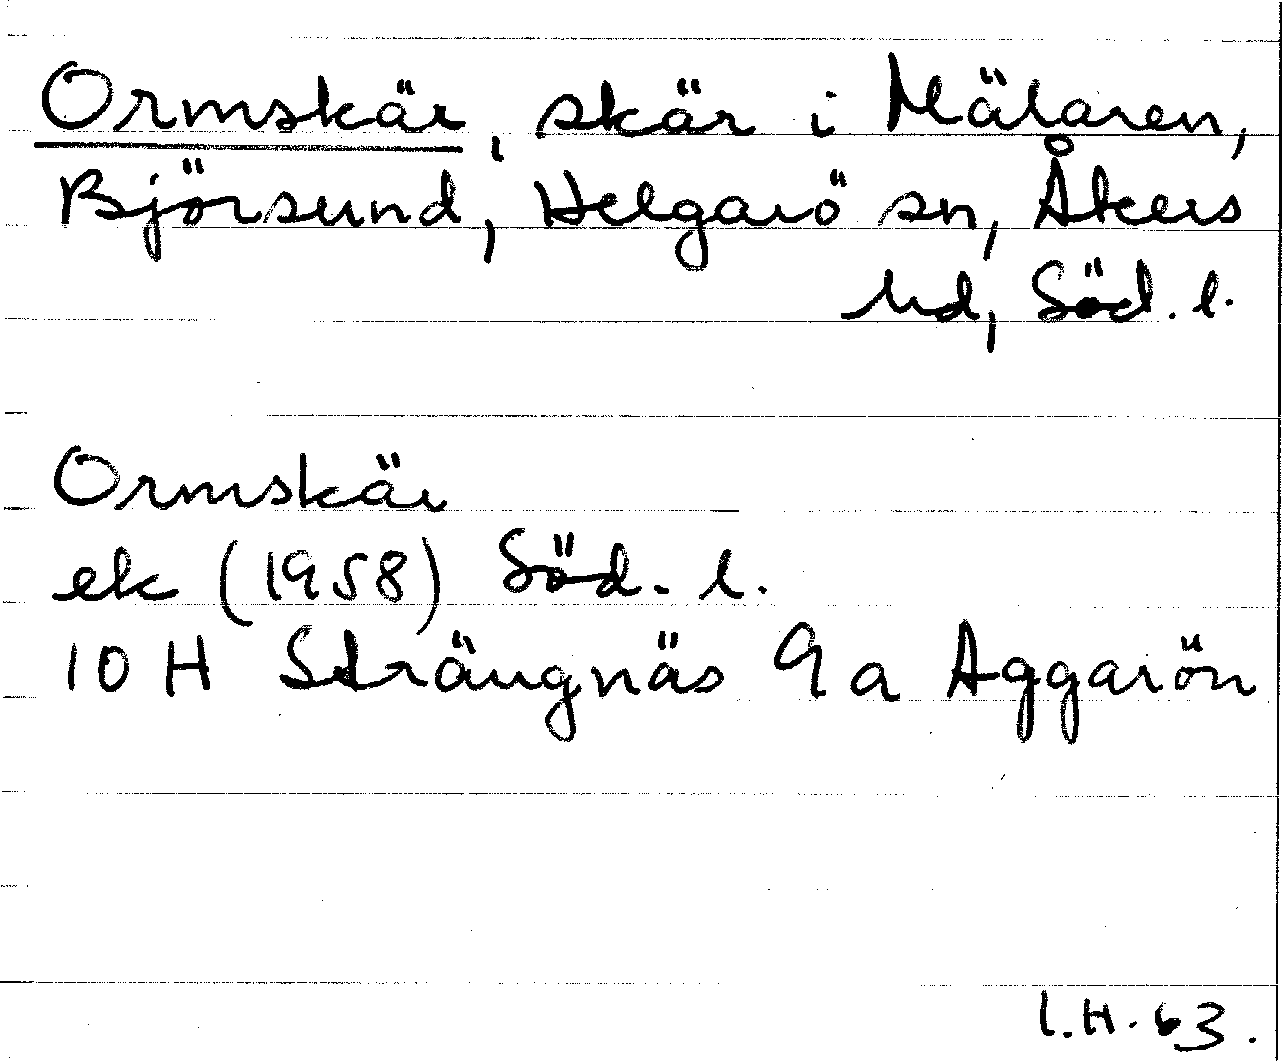 Ormskär, skär i Mälaren,
Björsund, Helgarö sn, Åkers
hd, Söd. l.
Ormskär
ek (1958) Söd. l.
10 H Strängnäs 9 a Aggarön
I.H. 63.